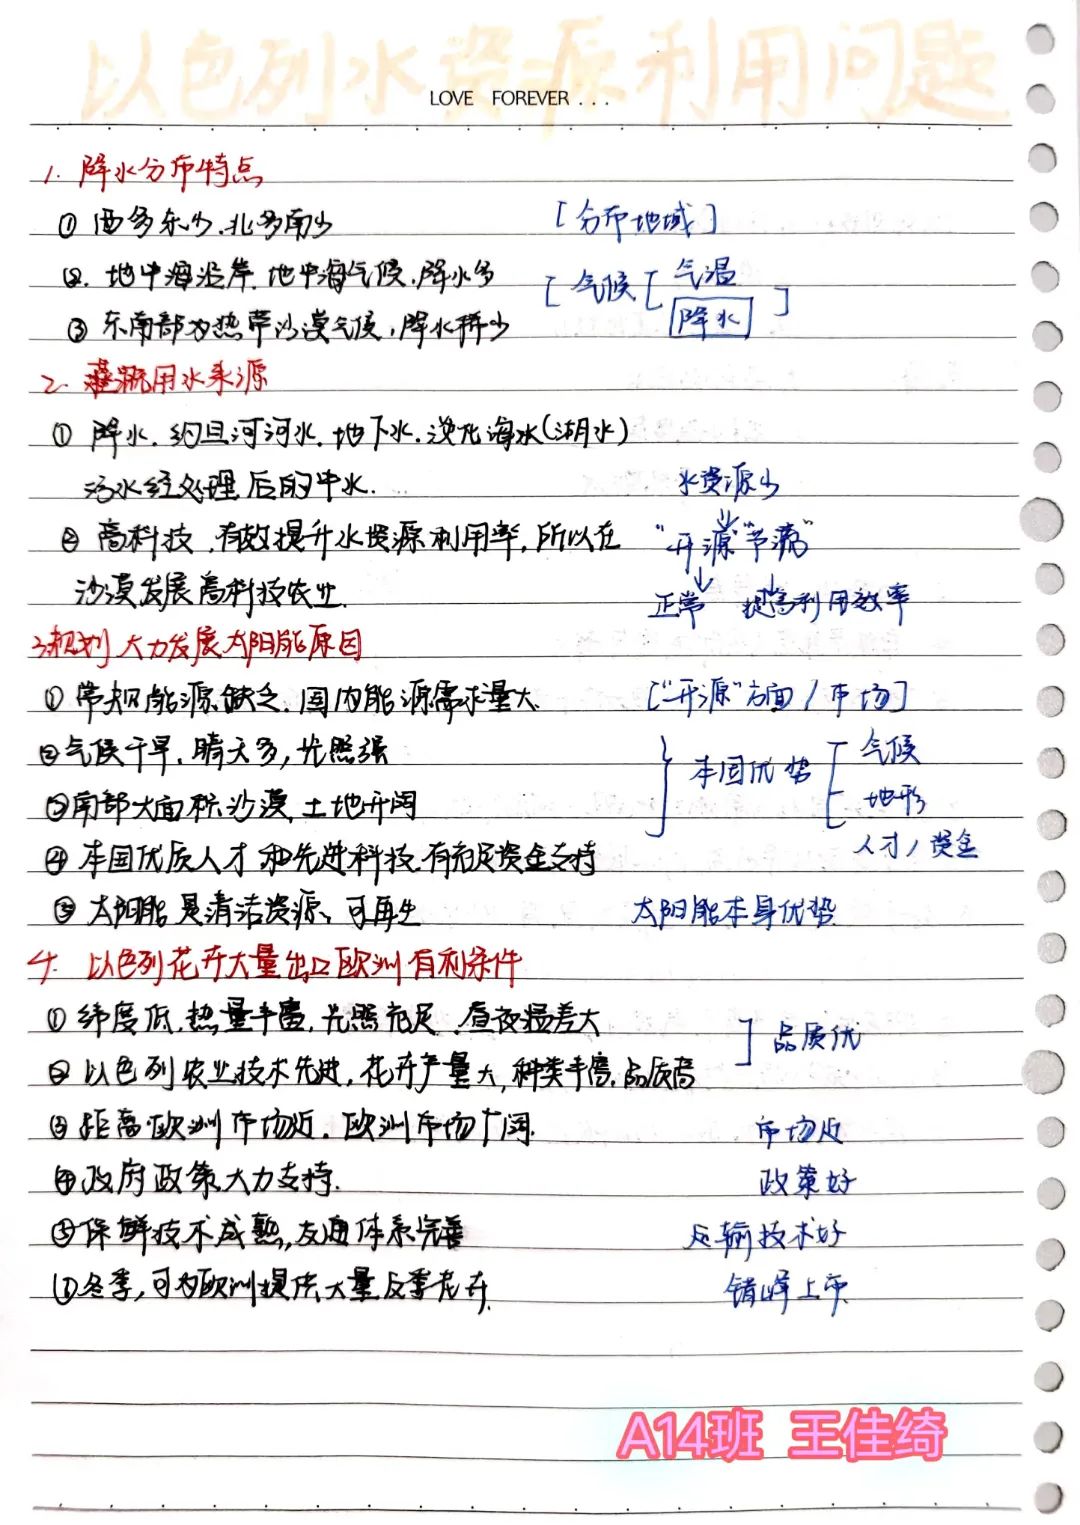 以色列水资源利用问题
LOVE FOREVER...
1. 降水分布特点
① 西多东少、北多南少 [分布地域]
②. 地中海沿岸 地中海气候，降水多 [气候[气温
降水]
③ 东南部为热带沙漠气候，降水稀少
2. 灌溉用水来源
① 降水、约旦河河水、地下水、淡化海水(湖水)
污水经处理后的中水. 水资源少
② 高科技，有效提升水资源利用率，所以在 "开源""节流"
沙漠发展高科技农业. 正常 提高利用效率
3.规划大力发展太阳能原因
① 常规能源缺乏，国内能源需求量大 ["开源"方面/市场]
②气候干旱，晴天多，光照强 本国优势 气候
③南部大面积沙漠，土地开阔 地形
④ 本国优质人才和先进科技，有充足资金支持 人才/资金
⑤ 太阳能是清洁资源、可再生 太阳能本身优势
4. 以色列花卉大量出口欧洲有利条件
① 纬度低，热量丰富，光照充足，昼夜温差大 ]品质优
② 以色列农业技术先进，花卉产量大，种类丰富，品质高
③ 距离欧洲市场近，欧洲市场广阔. 市场近
④政府政策大力支持. 政策好
⑤保鲜技术成熟，交通体系完善 运输技术好
冬季，可为欧洲提供大量反季花卉. 错峰上市.
A14班 王佳绮